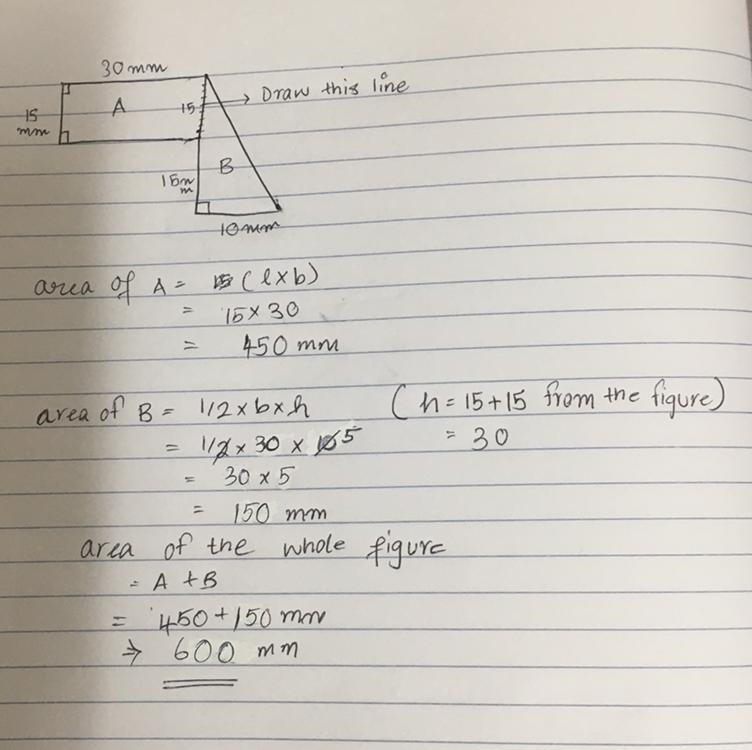 30mm
A
15
→ Draw this line
15
mm
B
15m
m
10mm
area of A = (l×b)
= 15×30
= 450 mm
area of B = 1/2×b×h (h=15+15 from the figure)
= 1/2 × 30 × 10 5 = 30
= 30×5
= 150 mm
area of the whole figure
= A+B
= 450+150mm
⇒ 600 mm